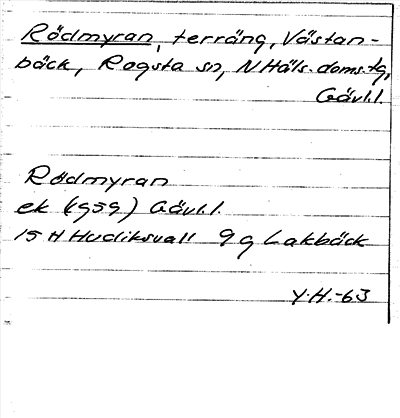 Rödmyran, terräng, Västan-
bäck, Rogsta sn, N Häls. doms.tg,
Gävl.l.
Rödmyran
ek (1959) Gävl.l.
15 H Hudiksvall 9 g Lakbäck
Y.H.-63